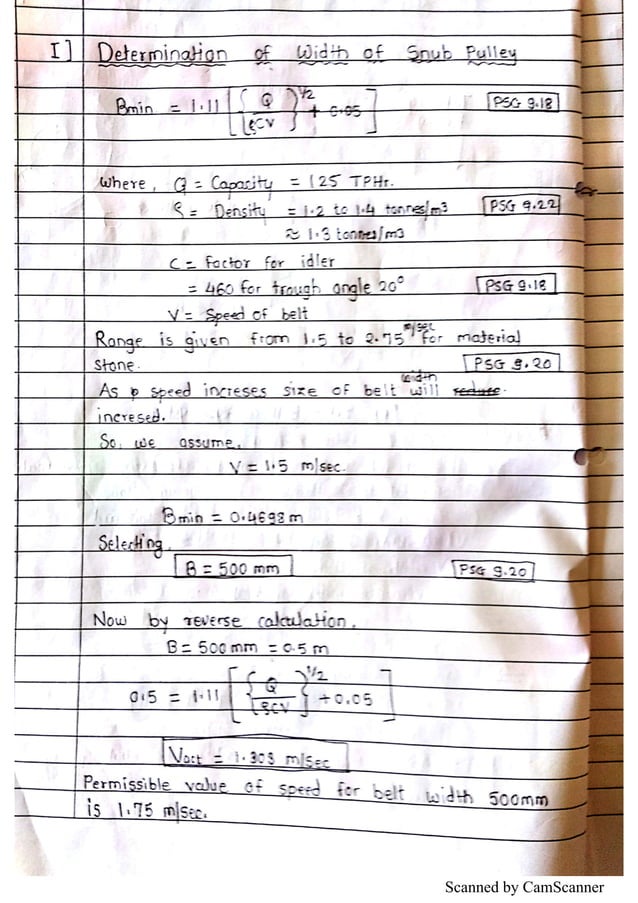 I] Determination of Width of Snub Pulley
Bmin = 1.11 [{Q/ρCV}^1/2 + 0.05]
PSG 9.18
where, Q = Capacity = 125 TPHr.
ρ = Density = 1.2 to 1.4 tonnes/m3
PSG 9.22
≈ 1.3 tonnes/m3
C = factor for idler
= 460 for trough angle 20°
PSG 9.18
V = Speed of belt
Range is given from 1.5 to 2.75 m/sec for material
stone.
PSG 9.20
As speed increses size of belt width will reduce.
incresed.
So, we assume,
V = 1.5 m/sec.
Bmin = 0.4698 m
Selecting,
B = 500 mm
PSG 9.20
Now by reverse calculation.
B = 500 mm = 0.5 m
0.5 = 1.11 [{Q/ρCV}^1/2 + 0.05]
Vact = 1.303 m/sec
Permissible value of speed for belt width 500mm
is 1.75 m/sec.
Scanned by CamScanner